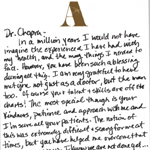 A
Dr. Chopra,
In a million years I would not have
imagine the experience I have had with
my health, and the many things I needed to
find. However, you have been such a blessing
during all this. I am very grateful to have
met you, not just as a doctor, but the man
too. Of course your talent & skills are off the
charts! The most special though is your
kindness, patience, and approach with me and
I'm sure all your patients. The notion of
this was extremely difficult & scary for me at
times, but you have helped me overcome that
I know we are not done yet...